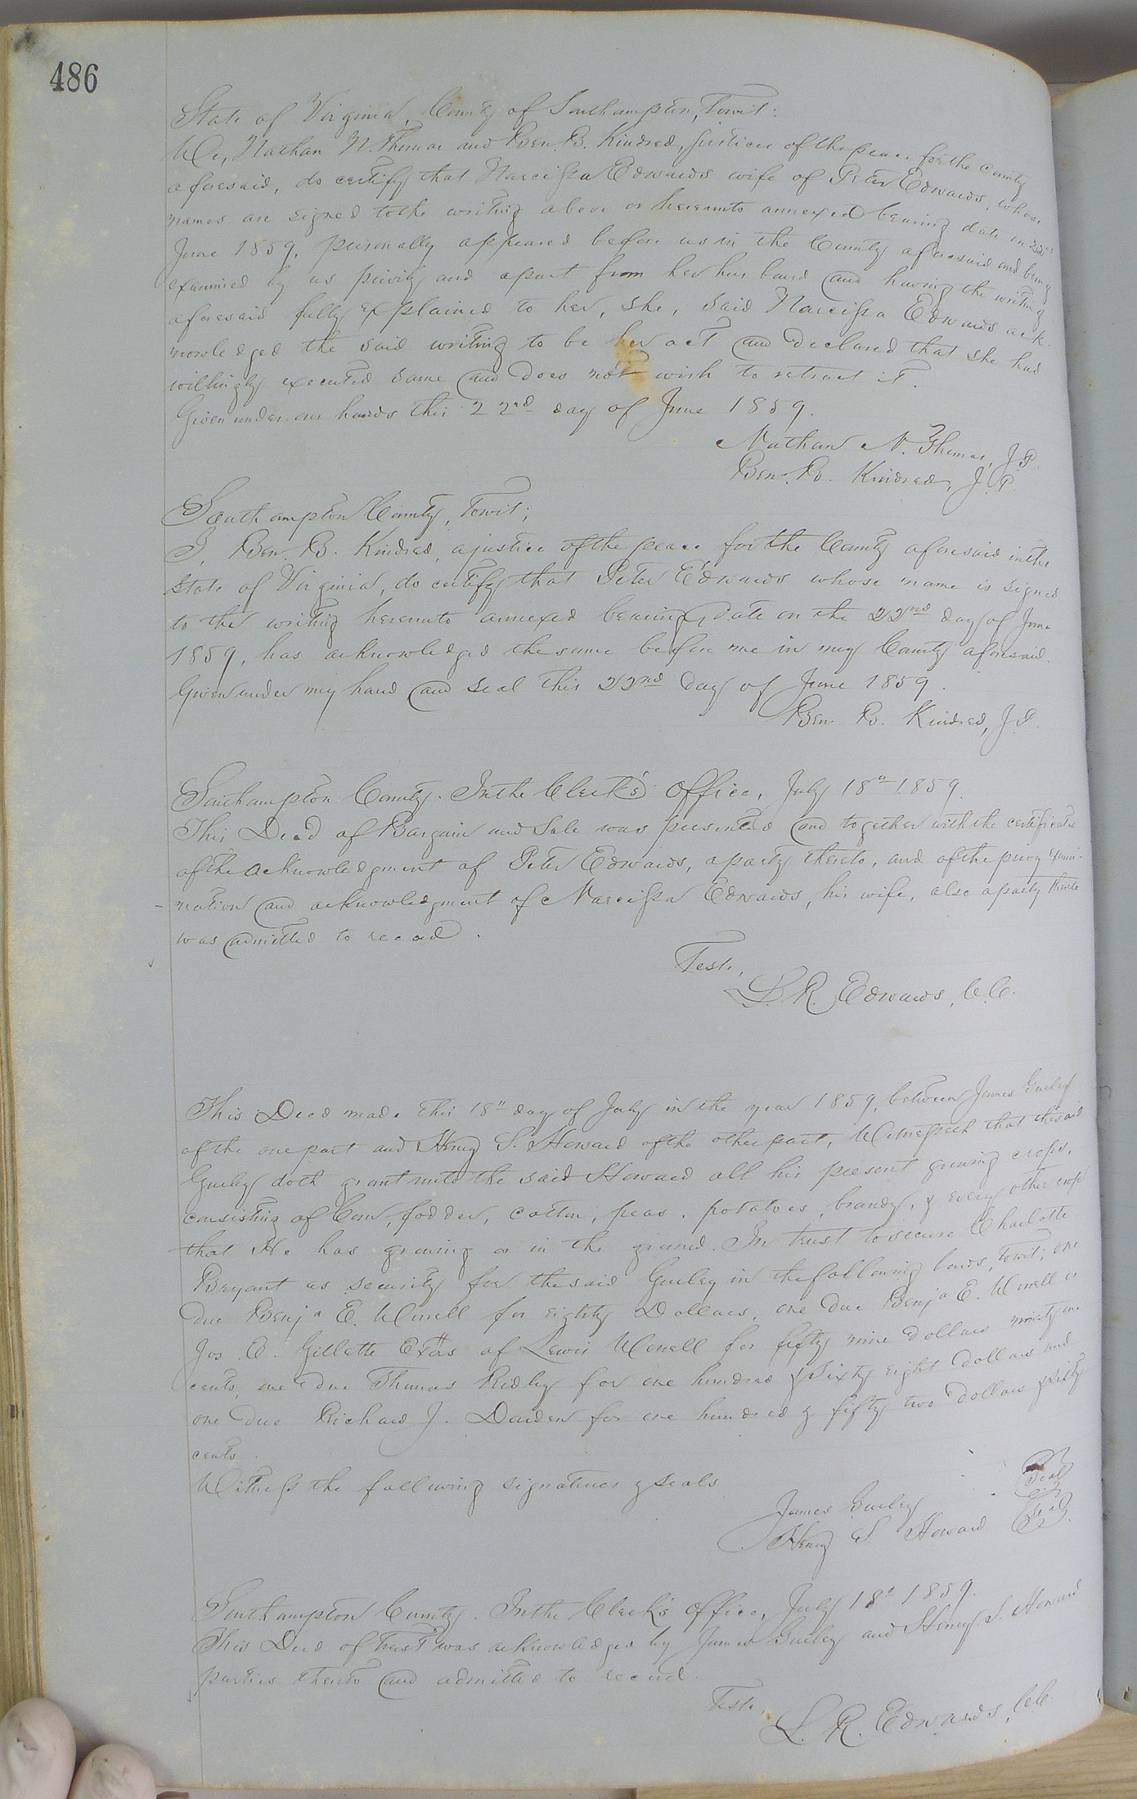 486
State of Virginia, County of Southampton, Towit:
We, Nathan N. Thomas and Ben. B. Kindred, justices of the peace for the County
aforesaid, do certify that Narcissa Edwards wife of Peter Edwards, whose
names are signed to the writing above or hereunto annexed bearing date on 22nd
June 1859, personally appeared before us in the County aforesaid and being
examined by us privily and apart from her husband and having the writing
aforesaid fully explained to her, she, said Narcissa Edwards ack-
nowledged the said writing to be her act and declared that she had
willingly executed same and does not wish to retract it.
Given under our hands this 22nd day of June 1859.
Nathan N. Thomas, J.P.
Ben. B. Kindred, J.P.
Southampton County, Towit;
I, Ben. B. Kindred, a justice of the peace for the County aforesaid in the
State of Virginia, do certify that Peter Edwards whose name is signed
to the writing hereunto annexed bearing date on the 22nd day of June
1859, has acknowledged the same before me in my County aforesaid.
Given under my hand and seal this 22nd day of June 1859.
Ben. B. Kindred, J.P.
Southampton County. In the Clerk's Office, July 18th 1859.
This Deed of Bargain and Sale was presented and together with the certificates
of the acknowledgment of Peter Edwards, a party thereto, and of the privy exami-
nation and acknowledgment of Narcissa Edwards, his wife, also a party thereto
was admitted to record.
Teste,
L. R. Edwards, C.C.
This Deed made this 18th day of July in the year 1859, between James Gurley
of the one part and Henry S. Howard of the other part, Witnesseth that the said
Gurley doth grant unto the said Howard all his present growing crops,
consisting of Corn, fodder, cotton, peas, potatoes, brandy, & every other crop
that He has growing or in the ground. In trust to secure Charlotte
Bryant as security for the said Gurley in the following bonds, Towit; one
due Benja E. Worrell for eighty Dollars, one due Benja E. Worrell &
Jos. D. Gillette Exors of Lewis Worrell for fifty nine dollars ninety one
cents, one due Thomas Ridley for one hundred & Sixty eight dollars and
one due Richard J. Darden for one hundred & fifty two dollars & sixty
cents.
Witness the following signatures & seals
James Gurley Seal
Henry S. Howard Seal
Southampton County. In the Clerk's office, July 18th 1859.
This Deed of Trust was acknowledged by James Gurley and Henry S. Howard
parties thereto and admitted to record.
Teste,
L. R. Edwards, C.C.